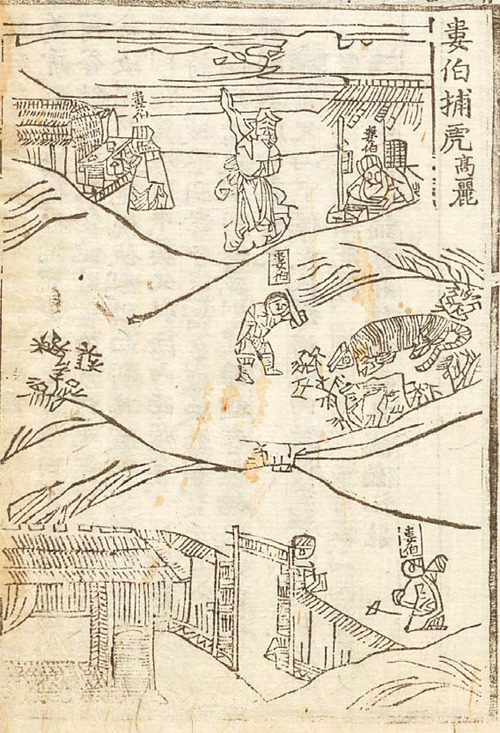 婁伯捕虎 高麗
婁伯
婁伯
婁伯
婁伯